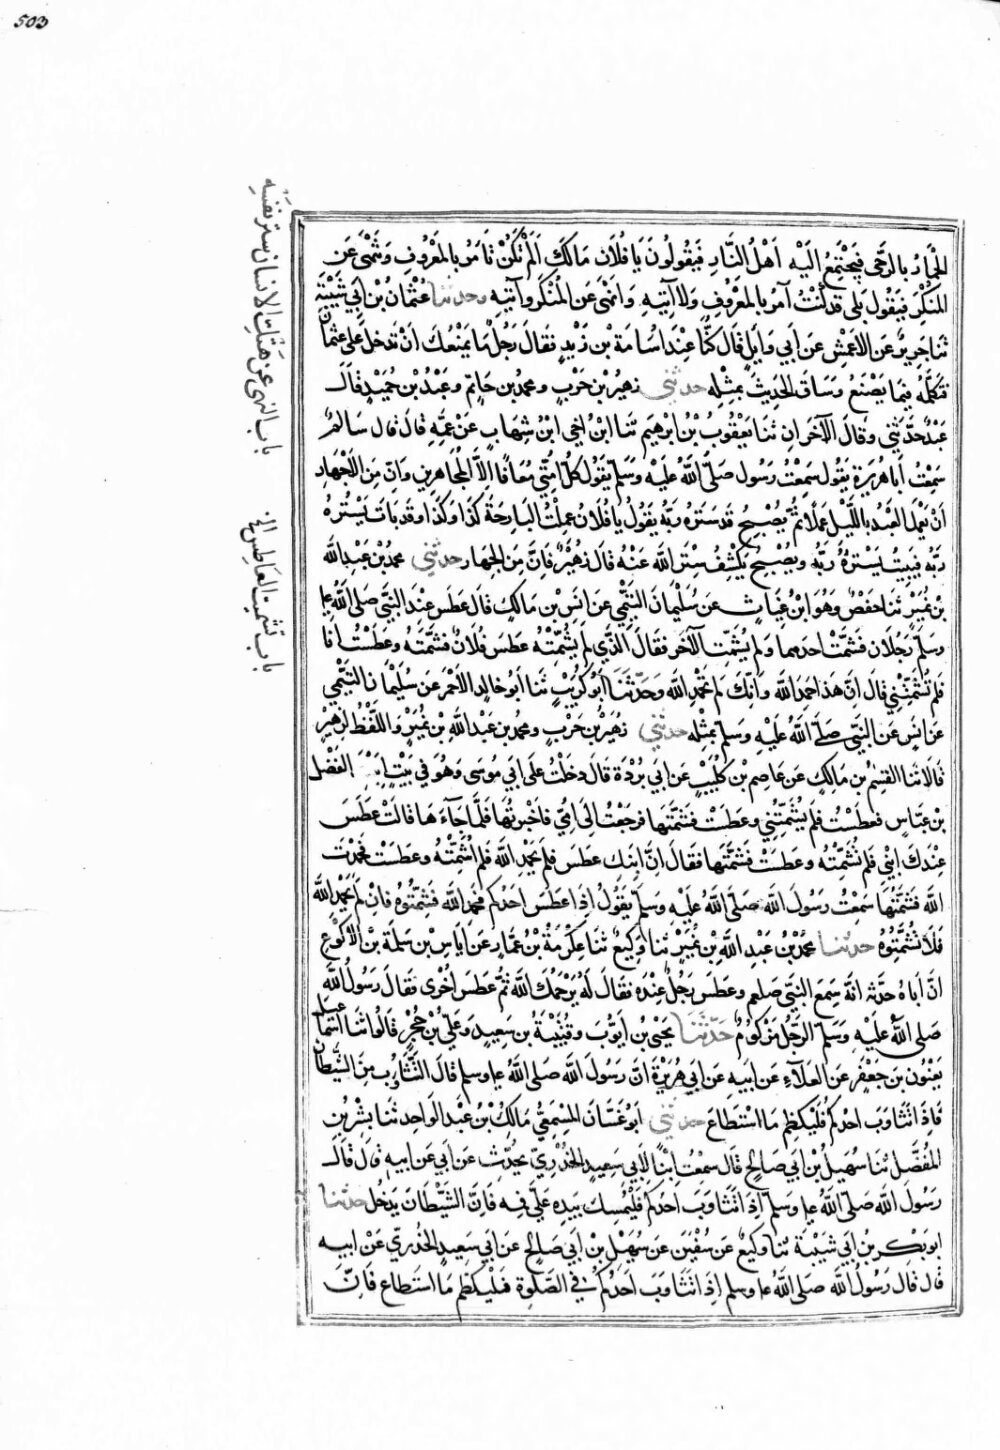 503
باب النهى عن هتك الانسان ستر نفسه
باب تشميت العاطس الخ
الحِمَارُ بالرحى فيَجْتَمِعُ اِلَيْهِ اَهْلُ النَّارِ فَيَقُولُونَ يَا فُلَان مَالَكَ اَلَمْ تَكُنْ تَأمُرُ بِالمَعْرُوفِ وَتَنْهَى عَنِ
المُنكَرِ فَيَقُول بَلى قد كُنْتُ آمرُ بالمعْرُوفِ وَلا آتِيهِ وَانهَى عَن المُنكَرِ وآتيه وحدثنا عُثْمانُ بْن اَبِي شَيْبَةَ
ثَنَا جَرِيرٌ عَن الاَعْمِش عَن اَبِي وَايِل قَال كنَّا عِنْدَ اُسَامَةَ بْن زَيْدٍ فَقَالَ رَجُلٌ مَا يَمْنَعُكَ اَنْ تَدخلَ عَلى عثمان
فَتكَلِّمَهُ فِيمَا يَصْنَعُ وَسَاقَ الحَدِيثَ بمِثْلِه حدثني زهَيرُ بْن حَربٍ ومحمد بن حَاتِمٍ وعَبْدُ بْن حُمَيْدٍ قَالَ
عَبْدٌ حدَّثَنِي وَقَالَ الآخَرَانِ ثنَا يَعْقُوبُ بْنُ ابْرهِيم ثنَا ابْنُ اَخِي ابْنِ شِهَابٍ عَنْ عَمِّهِ قَالَ قَال سَالمٌ
سَمِعْتُ اَبَا هُرَيرَةَ يَقُول سَمِعْتُ رَسُول صَلَّى اللَّهُ عَلَيْهِ وَسَلَّم يَقُولُ كُلُّ اُمَّتِي مُعَافًا اِلَّا المُجَاهِرِينَ وَاِنَّ مِنَ الاِجْهَارِ
اَنْ يَعْمَلَ العَبْدُ بِاللَّيْلِ عَمَلًا ثمَّ يُصْبِحُ قد سَتَرَهُ رَبُّهُ يقُول يَا فُلَانُ عَمِلْتُ البَارِحَةَ كَذَا وَكَذَا وقَد بَاتَ يَسْتُرُهُ
رَبُّهُ فَيَبِيتُ يَسْتُرُهُ رَبُّهُ ويُصْبِحُ يَكْشِفُ سِتْرَ اللهِ عَنْهُ قَالَ زُهَيْرٌ فَاِنَّ مِنَ الجِهَار حدثني محمد بن عَبدِ اللهِ
بن نُمَيْرٍ ثنَا حَفْصٌ وَهُوَ ابْنُ غِيَاثٍ عَن سُلَيْمانَ التَيْمِي عَن اَنَسِ بْنِ مَالِكٍ قَال عَطَسَ عِنْدَ النبِّي صَلى اللهُ عليه
وسَلم رَجُلَان فَشَمَّتَ احدهما ولَم يُشَمِّتِ الآخَر فَقالَ الَّذِي لم يشَمِّتْهُ عَطَسَ فُلَانٌ فَشَمَّتَهُ وعَطَسْتُ انَا
فَلم تُشَمِّتْنِي قَال اِنَّ هَذَا حَمِدَ اللهَ وَاِنَّكَ لَم تَحْمَدِ اللهَ وَحَدَّثَنَا اَبُو كُرَيْبٍ ثَنَا اَبُو خالِد الاَحْمَر عَن سُلَيْمانَ التَّيْمِي
عَن اَنَسٍ عَن النَّبِيّ صَلَّى اللَّهُ عَلَيْهِ وَسَلم بمِثْلِه حدثني زهَيرُ بْن حَربٍ ومحمد بن عَبْدِ اللهِ بْنِ نُمَيْرٍ وَاللَّفْظُ لِزُهَيْرٍ
قَالَا ثنا القسِمُ بن مَالِكٍ عَن عَاصِمِ بْن كُلَيْبٍ عَن اَبِي بُرْدَةَ قَالَ دخَلْتُ عَلَى اَبِي مُوسَى وَهُوَ فِي بَيْتِ الفَضْل
بْن عبَّاسٍ فَعَطَسْتُ فَلَم يُشَمِّتْنِي وعَطَسَتْ فَشَمَّتَهَا فَرجَعْتُ اِلَى اُمِّي فَاَخْبَرتُهَا فَلَمَّا جَآءَهَا قَالَتْ عَطَسَ
عِنْدَكَ ابْنِي فَلَم تُشَمِّتْهُ وعَطسَتْ فَشَمَّتَّهَا فَقَالَ اِنَّ ابْنَكِ عَطَسَ فلَم يَحْمَدِ اللهَ فَلَم اُشَمِّتْهُ وعَطَسَتْ فَحَمِدَتِ
اللهَ فَشَمَّتُّهَا سَمِعْتُ رَسُولَ اللَّهِ صَلَّى اللَّهُ عَلَيْهِ وَسَلَّم يَقُولُ اِذَا عَطَسَ اَحَدُكُم فَحَمِدَ اللهَ فَشَمِّتُوهُ فَاِنْ لَم يَحْمَدِ اللهَ
فَلَا تُشَمِّتُوهُ حدثنا محمَّدُ بْنُ عَبْدِ اللَّهِ بْنِ نُمَيْرٍ ثنا وَكِيعٌ ثنَا عِكْرمَةُ بْنُ عَمَّارٍ عَن اِيَاسِ بْن سَلَمَةَ بْن الاَكْوَعِ
اَنَّ اَبَاهُ حدَّثَه انَّهُ سَمِعَ النبِيَّ صلعم وعَطَسَ رَجُلٌ عِنْدَه فَقَالَ لَهُ يَرْحَمُكَ اللهُ ثمَّ عَطَسَ اُخْرَى فَقَالَ رَسُولُ اللهِ
صَلى اللهُ عَلَيْهِ وَسَلَّم الرَّجُلُ مَزْكُومٌ حَدّثَنَا يَحْيَى بن اَيُّوبَ وقُتَيْبَةُ بن سَعِيدٍ وَعَلِيُّ بْنُ حُجْرٍ قَالُوا ثنَا اسْمَاعيل
يَعْنُونَ بنَ جَعْفَرٍ عَنِ العَلَآءِ عَن اَبِيهِ عَن اَبِي هُرَيْرَةَ انَّ رَسُولَ اللهِ صَلى اللهُ عليه وسلم قَالَ التَّثَاوُبُ مِنَ الشَّيْطَانِ
فَاِذَا تَثَاوَبَ احَدُكُم فَلْيَكظِم مَا اسْتَطَاعَ حدثني ابُو غَسَّانَ المِسْمَعِيُّ مَالِكُ بْنُ عَبْدِ الوَاحِد ثنَا بِشْرُ بْن
المُفَضَّل ثنَا سُهَيْلُ بْن اَبِي صَالِحٍ قَالَ سمِعْتُ ابْنًا لِاَبِي سَعِيدٍ الخُدْرِيّ يُحَدِّث عَن اَبِي عَن اَبيهِ قَالَ قَالَ
رَسُولَ اللهِ صَلَّى اللهُ عليه وسَلم اِذَا تَثَاوَبَ احَدُكُم فَلْيُمْسِكْ بِيَدِهِ عَلَى فِيهِ فَاِنَّ الشَّيْطَانَ يَدْخُلُ حدثنا
ابو بَكْرِ بن اَبِي شَيْبَةَ ثنَا وَكِيعٌ عَن سُفْيَنَ عَن سُهَيْلِ بْنِ اَبِي صَالِحٍ عَن اَبِي سَعِيدٍ الخُدْرِي عَنْ اَبيه
قَال قَال رَسُولُ اللهِ صَلَى اللهُ عليه وسلم اِذَا تَثَاوَبَ اَحَدُكُم فِي الصَّلوةِ فَلْيَكظِم مَا اسْتَطَاع فَاِنَّ